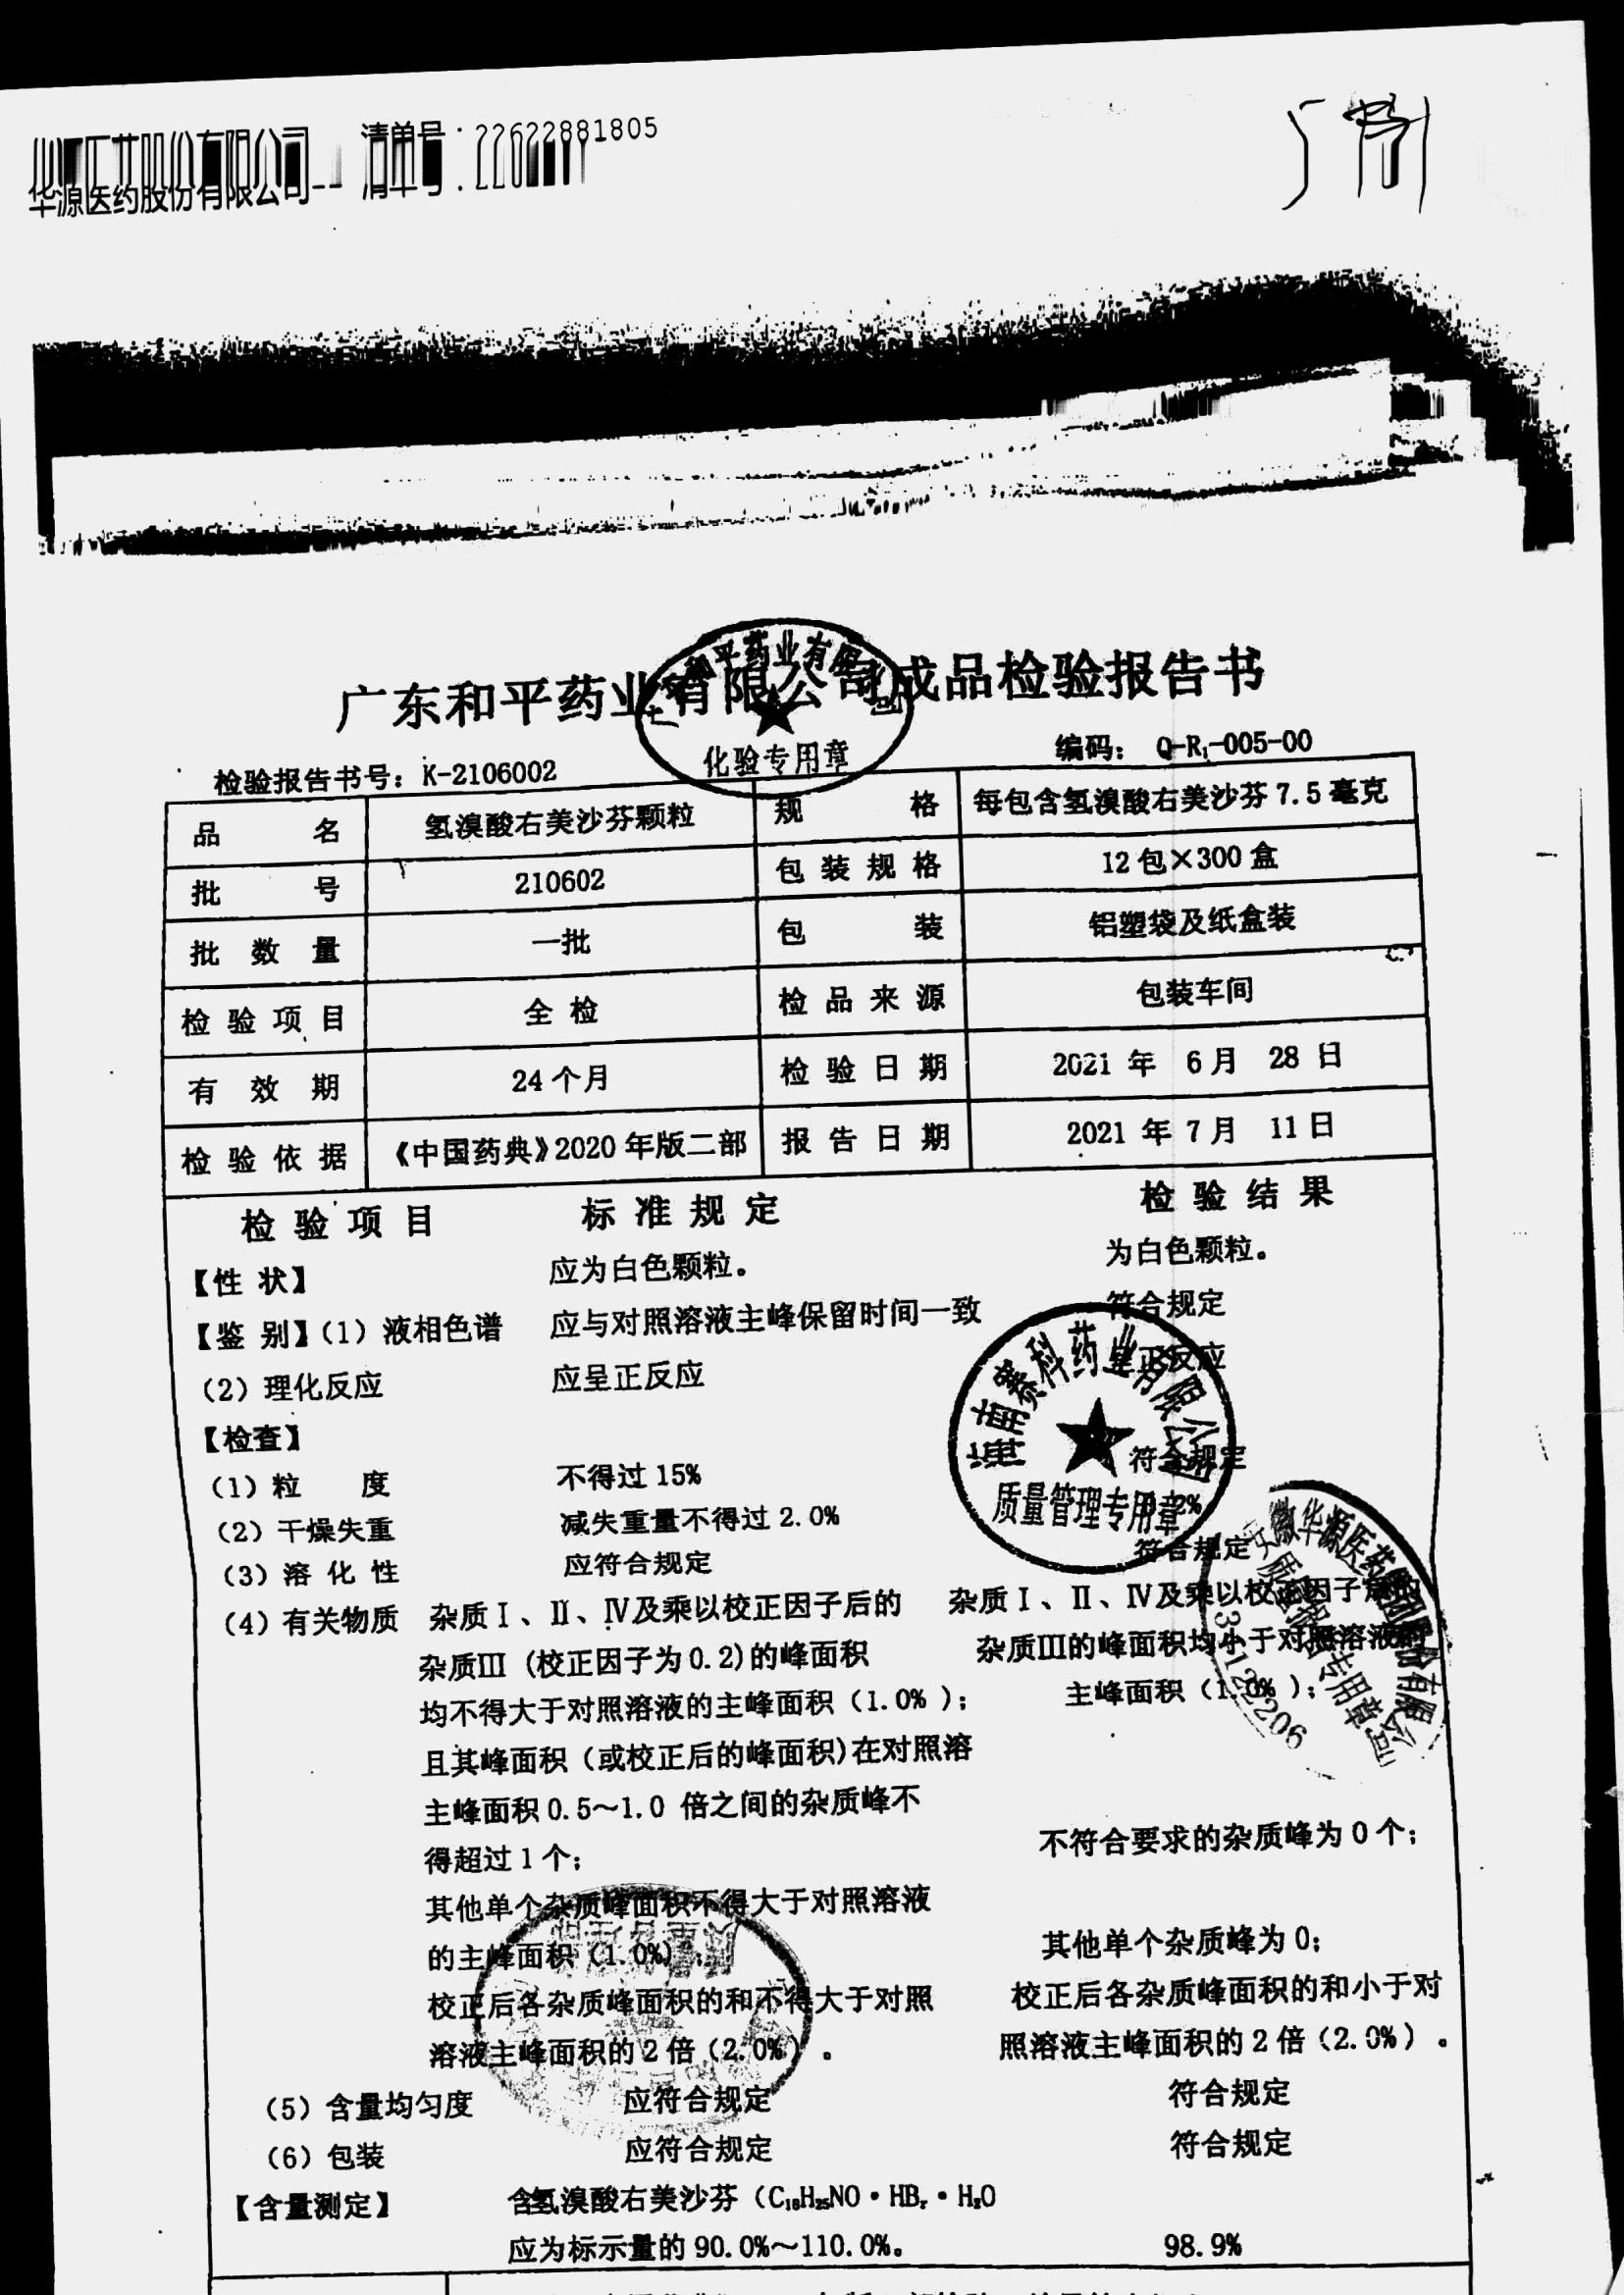 华源医药股份有限公司-- 清单号:22622881805
广东和平药业有限公司成品检验报告书
化验专用章
检验报告书号：K-2106002 编码： Q-R₁-005-00
品 名 氢溴酸右美沙芬颗粒 规 格 每包含氢溴酸右美沙芬 7.5 毫克
批 号 210602 包 装 规 格 12 包×300 盒
批 数 量 一批 包 装 铝塑袋及纸盒装
检 验 项 目 全 检 检 品 来 源 包装车间
有 效 期 24 个月 检 验 日 期 2021 年 6 月 28 日
检 验 依 据 《中国药典》2020 年版二部 报 告 日 期 2021 年 7 月 11 日
检 验 项 目 标 准 规 定 检 验 结 果
【性 状】 应为白色颗粒。 为白色颗粒。
【鉴 别】（1）液相色谱 应与对照溶液主峰保留时间一致 符合规定
（2）理化反应 应呈正反应 呈正反应
【检查】
（1）粒 度 不得过 15% 符合规定
（2）干燥失重 减失重量不得过 2.0% 2%
（3）溶 化 性 应符合规定 符合规定
赛科药业有限公司
质量管理专用章
安徽华源医药集团股份有限公司
专用章
（4）有关物质 杂质Ⅰ、Ⅱ、Ⅳ及乘以校正因子后的 杂质Ⅰ、Ⅱ、Ⅳ及乘以校正因子后的
杂质Ⅲ (校正因子为 0.2)的峰面积 杂质Ⅲ的峰面积均小于对照溶液的
均不得大于对照溶液的主峰面积（1.0% ）； 主峰面积（1.0% ）；
且其峰面积（或校正后的峰面积)在对照溶
主峰面积 0.5～1.0 倍之间的杂质峰不
得超过 1 个； 不符合要求的杂质峰为 0 个；
其他单个杂质峰面积不得大于对照溶液
的主峰面积（1.0%）； 其他单个杂质峰为 0；
校正后各杂质峰面积的和不得大于对照 校正后各杂质峰面积的和小于对
溶液主峰面积的 2 倍（2.0%）。 照溶液主峰面积的 2 倍（2.0%）。
（5）含量均匀度 应符合规定 符合规定
（6）包装 应符合规定 符合规定
【含量测定】 含氢溴酸右美沙芬（C₁₈H₂₅NO·HBr·H₂O
应为标示量的 90.0%～110.0%。 98.9%